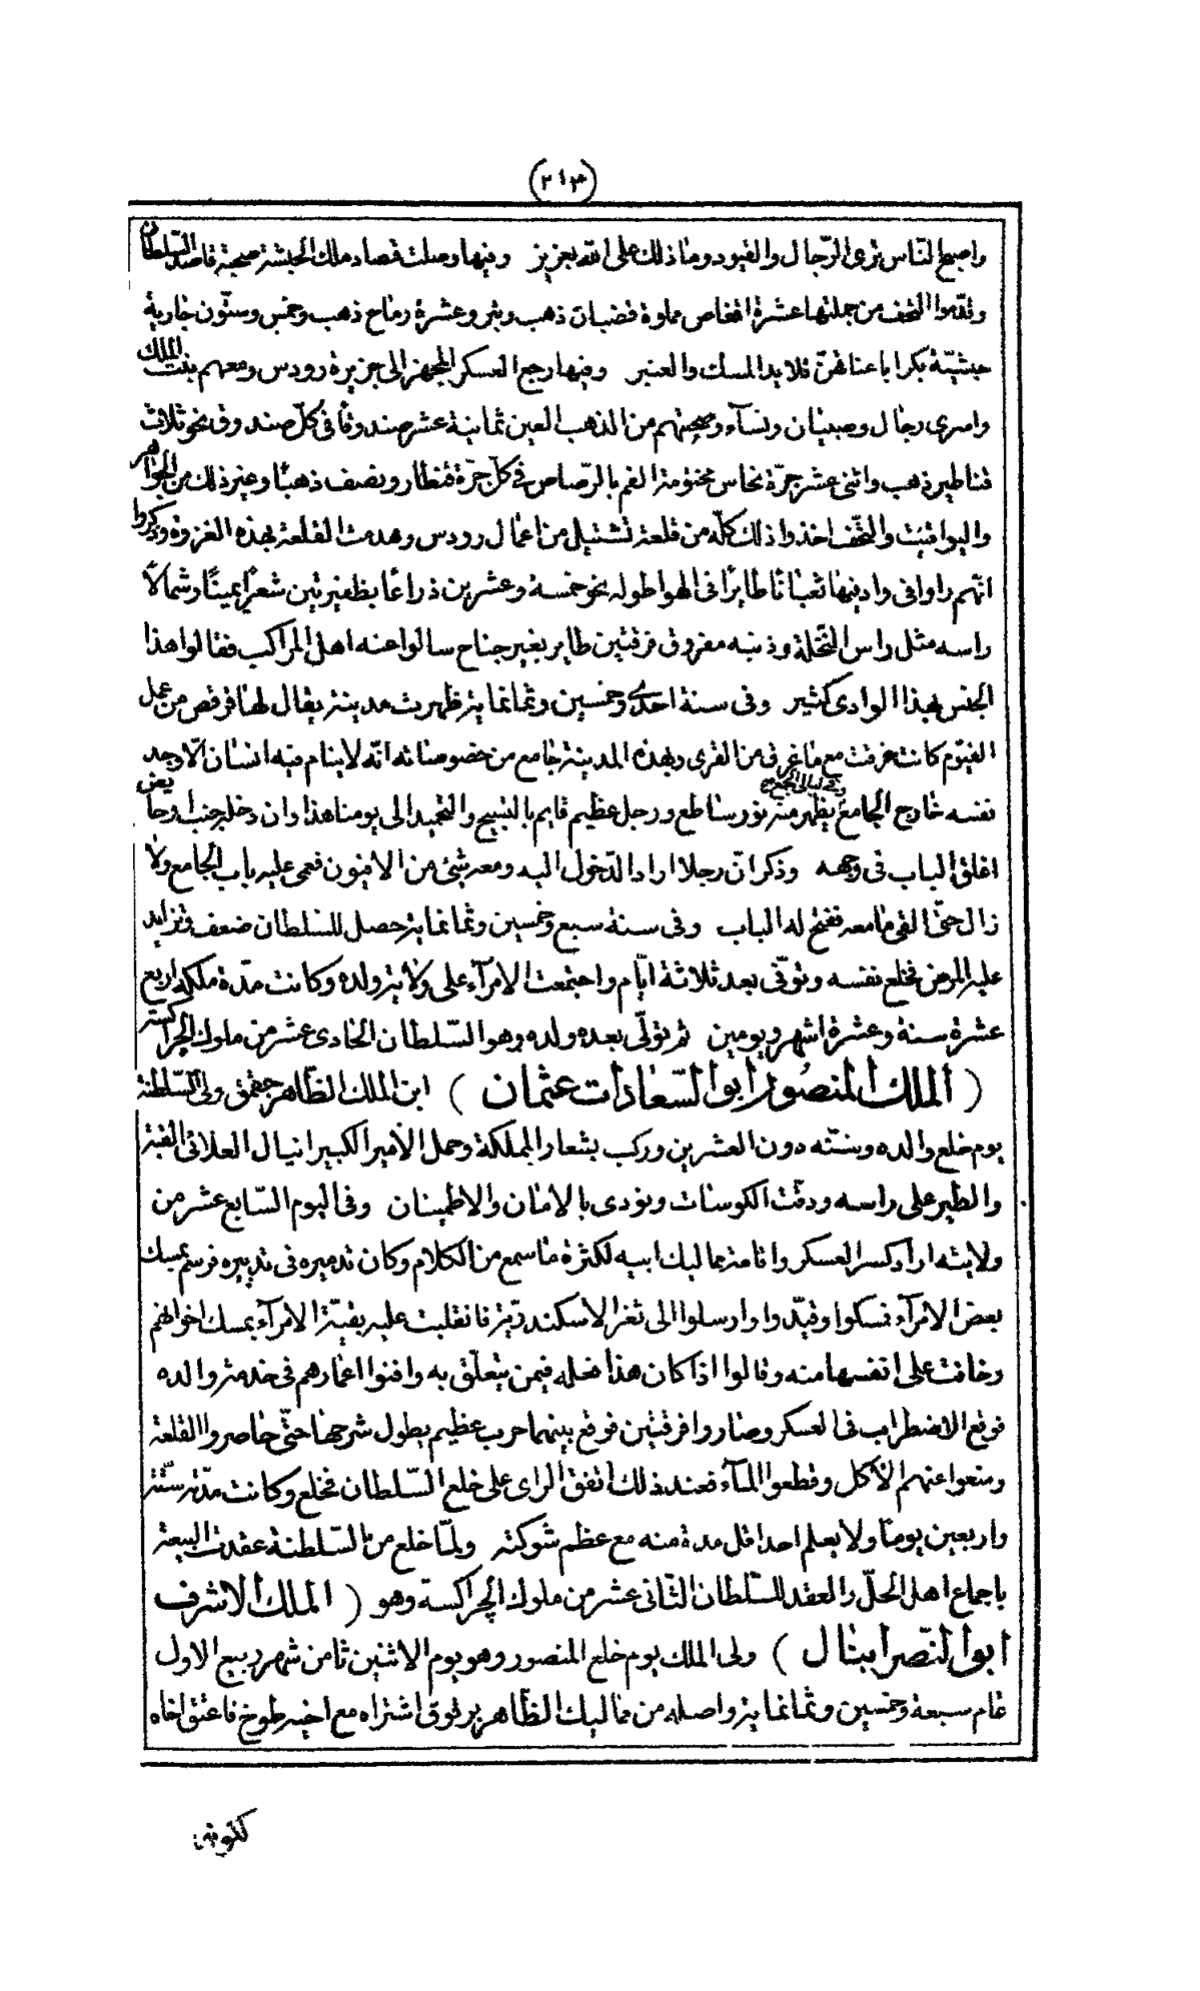 (٢١٣)
واصبح النّاس ترى الرّجال والقيود وما ذلك على الله بعزيز وفيها وصلت قصاد ملك الحبشة صحبة قاصد السّلطان
وقدّموا التّحف من جملتها عشرة اقفاص مملوة قضبان ذهب وتبر وعشرة رماح ذهب وخمس وستّون جارية
حبشيّة بكرا باعناقهنّ قلايد المسك والعنبر وفيها رجع العسكر المجهز الى جزيرة رودس ومعهم بنت الملك
واسرى رجال وصبيان ونسآء وصحبتهم من الذهب العين ثمانية عشر صندوقا فى كلّ صندوق نحو ثلاث
قناطير ذهب واثنى عشر جرّة نحاس مختومة الفم بالرّصاص فى كلّ جرّة قنطار ونصف ذهبًا وغير ذلك من الجواهر
واليواقيت والتّحف اخذوا ذلك كلّه من قلعة تشتيل من اعمال رودس وهدمت القلعة بهذه الغزوة وذكروا
انّهم راوا فى واديها ثعبانًا طايرًا فى الهوا طوله نحو خمسة وعشرين ذراعًا بظفيرتين شعرًا يمينًا وشمالاً
راسه مثل راس النّخلة وذنبه مفروق فرقتين طاير بغير جناح سالوا عنه اهل المراكب فقالوا هذا
الجنس بهذا الوادى كثير وفى سنة احدى وخمسين وثمانماية ظهرت مدينة يقال لها قرقص من عمل
الفيّوم كانت غرقت مع ما غرق من القرى وبهذه المدينة جامع من خصوصاته انّه لا ينام فيه انسان الّا وجد
نفسه خارج الجامع وفى ليالى الجمع يظهر منه نور ساطع ورجل عظيم قايم بالتسبيح والتحميد الى يومنا هذا وان دخله جنب او حايض
اغلق الباب فى وجهه وذكر انّ رجلا اراد الدّخول اليه ومعه شئ من الافيون فعمى عليه باب الجامع ولا
زال حتّى القى ما معه ففتح له الباب وفى سنة سبع وخمسين وثمانماية حصل للسلطان ضعف وتزايد
عليه المرض فخلع نفسه وتوفّى بعد ثلاثة ايّام واجتمعت الامرآء على ولاية ولده وكانت مدّة ملكه اربع
عشرة سنة وعشرة اشهر ويومين ثم تولّى بعده ولده وهو السّلطان الحادى عشر من ملوك الجراكسة
(الملك المنصور ابو السّعادات عثمان) ابن الملك الظاهر جقمق ولى السّلطنة
يوم خلع والده وسنّه دون العشرين وركب بشعار المملكة وحمل الامير الكبير اينال العلائى القبة
والطير على راسه ودقت الكوسات ونودى بالامان والاطمينان وفى اليوم السّابع عشر من
ولايته اراد كسر العسكر واقامة مماليك ابيه لكثرة ما سمع من الكلام وكان تدميره فى تدبيره فرسم بمسك
بعض الامرآء فمسكوا وقيّدوا وارسلوا الى ثغر الاسكندريّة فانقلبت عليه بقيّة الامرآء بمسك اخوانهم
وخافت على انفسها منه وقالوا اذا كان هذا فعله فيمن يتعلّق به وافنوا اعمارهم فى خدمة والده
فوقع الاضطراب فى العسكر وصاروا فرقتين فوقع بينهما حرب عظيم يطول شرحها حتّى حاصروا القلعة
ومنعوا عنهم الاكل وقطعوا المآء فعند ذلك اتفق الراى على خلع السّلطان فخلع وكانت مدّته ستّة
واربعين يومًا ولا يعلم احد اقل مدة منه مع عظم شوكته ولمّا خلع من السّلطنة عقدت البيعة
باجماع اهل الحلّ والعقد للسّلطان الثانى عشر من ملوك الجراكسة وهو (الملك الاشرف
ابو النّصر اينال) ولى الملك يوم خلع المنصور وهو يوم الاثنين ثامن شهر ربيع الاول
عام سبعة وخمسين وثمانماية واصله من مماليك الظاهر برقوق اشتراه مع اخيه طوخ فاعتق اخاه